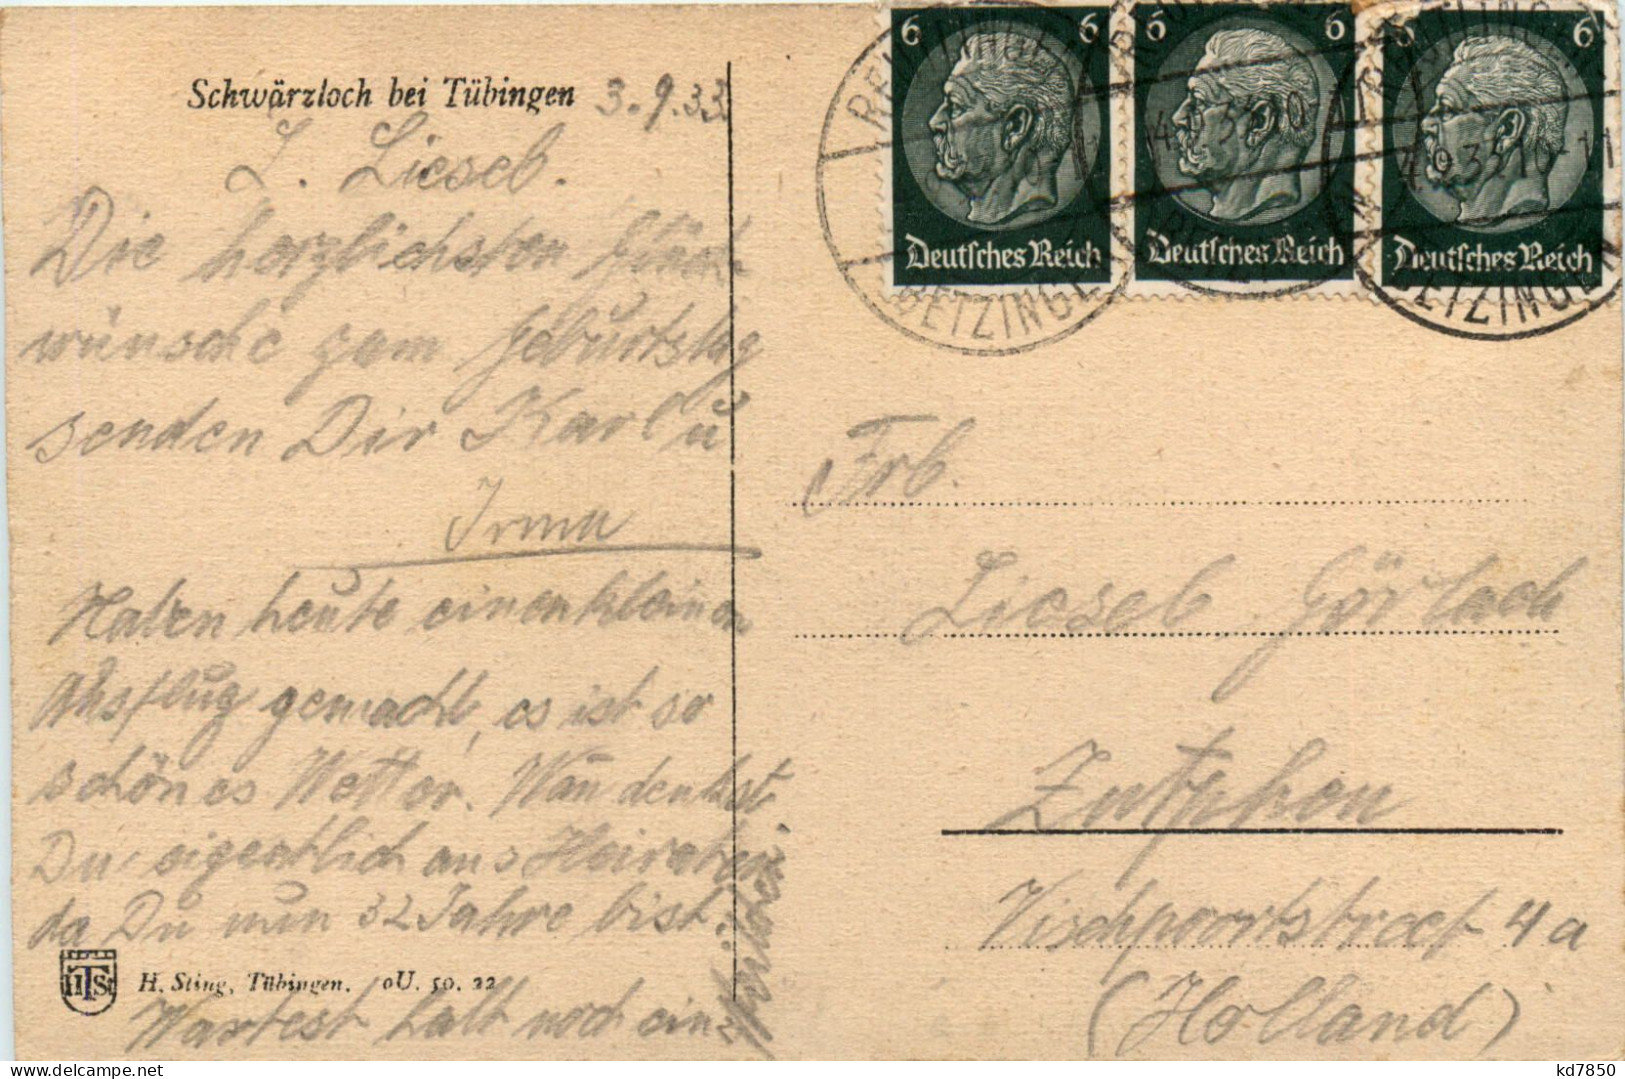 Schwärzloch bei Tübingen 3.9.33
L. Liesel.
Die herzlichsten Glück
wünsche zum Geburtstag
senden Dir Karl u
Irma
Haben heute einen kleinen
Ausflug gemacht, es ist so
schönes Wetter. Wan denkst
Du eigentlich ans Heiraten
da Du nun 32 Jahre bist.
H. Sting, Tübingen. 0U. 50. 22
Wartest halt noch ein
HTS
6 6
Deutsches Reich
6 6
Deutsches Reich
6 6
Deutsches Reich
REUTLINGEN
BETZINGEN
Frl.
Liesel Görlach
Zutphen
Vischpoortstraat 4a
(Holland)
kd7850